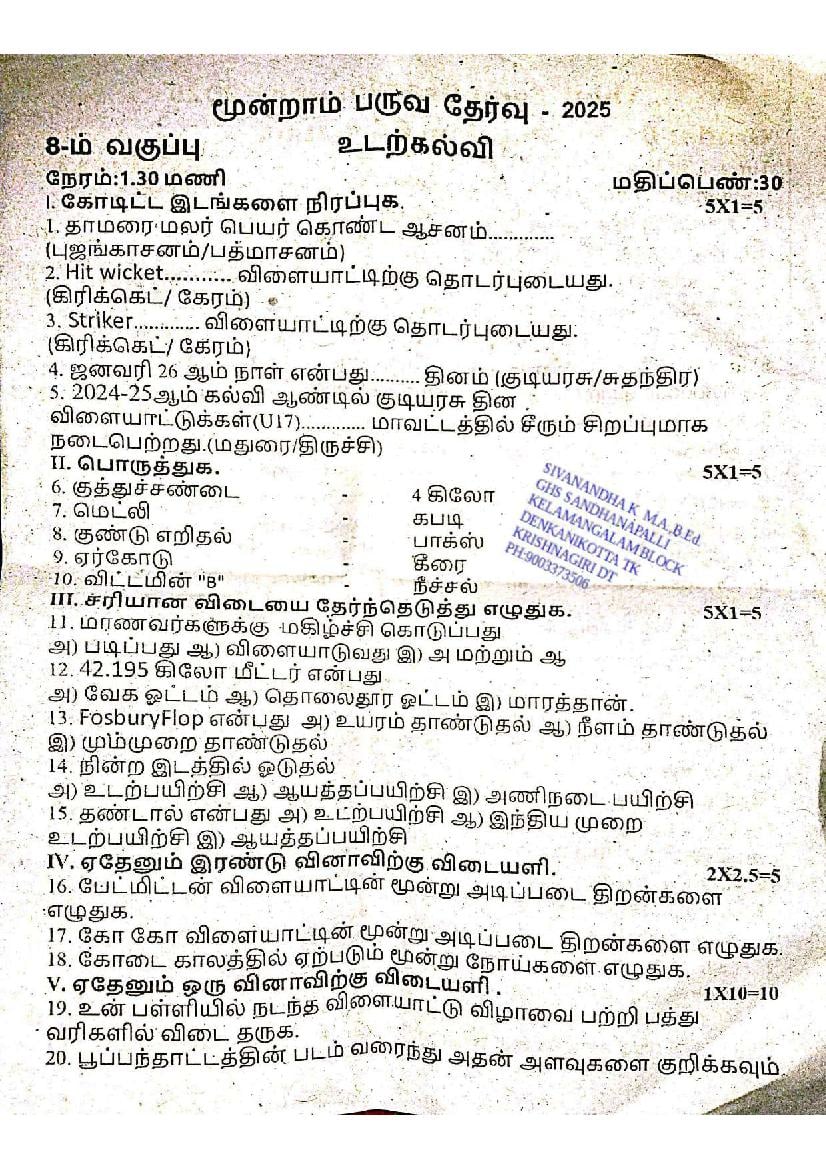 மூன்றாம் பருவ தேர்வு - 2025
8-ம் வகுப்பு உடற்கல்வி
நேரம்:1.30 மணி மதிப்பெண்:30
I. கோடிட்ட இடங்களை நிரப்புக. 5X1=5
1. தாமரை மலர் பெயர் கொண்ட ஆசனம்.............
(புஜங்காசனம்/பத்மாசனம்)
2. Hit wicket........... விளையாட்டிற்கு தொடர்புடையது.
(கிரிக்கெட்/ கேரம்)
3. Striker............ விளையாட்டிற்கு தொடர்புடையது.
(கிரிக்கெட்/ கேரம்)
4. ஜனவரி 26 ஆம் நாள் என்பது......... தினம் (குடியரசு/சுதந்திர)
5. 2024-25ஆம் கல்வி ஆண்டில் குடியரசு தின
விளையாட்டுக்கள்(U17)............ மாவட்டத்தில் சீரும் சிறப்புமாக
நடைபெற்றது.(மதுரை/திருச்சி)
II. பொருத்துக. 5X1=5
6. குத்துச்சண்டை - 4 கிலோ
7. மெட்லி - கபடி
8. குண்டு எறிதல் - பாக்ஸ்
9. ஏர்கோடு - கீரை
10. விட்டமின் "B" - நீச்சல்
SIVANANDHA K M.A.,B.Ed.
GHS SANDHANAPALLI
KELAMANGALAM BLOCK
DENKANIKOTTA TK
KRISHNAGIRI DT
PH:9003373506
III. சரியான விடையை தேர்ந்தெடுத்து எழுதுக. 5X1=5
11. மாணவர்களுக்கு மகிழ்ச்சி கொடுப்பது
அ) படிப்பது ஆ) விளையாடுவது இ) அ மற்றும் ஆ
12. 42.195 கிலோ மீட்டர் என்பது
அ) வேக ஓட்டம் ஆ) தொலைதூர ஓட்டம் இ) மாரத்தான்.
13. FosburyFlop என்பது அ) உயரம் தாண்டுதல் ஆ) நீளம் தாண்டுதல்
இ) மும்முறை தாண்டுதல்
14. நின்ற இடத்தில் ஓடுதல்
அ) உடற்பயிற்சி ஆ) ஆயத்தப்பயிற்சி இ) அணிநடை பயிற்சி
15. தண்டால் என்பது அ) உடற்பயிற்சி ஆ) இந்திய முறை
உடற்பயிற்சி இ) ஆயத்தப்பயிற்சி
IV. ஏதேனும் இரண்டு வினாவிற்கு விடையளி. 2X2.5=5
16. பேட்மிட்டன் விளையாட்டின் மூன்று அடிப்படை திறன்களை
எழுதுக.
17. கோ கோ விளையாட்டின் மூன்று அடிப்படை திறன்களை எழுதுக.
18. கோடை காலத்தில் ஏற்படும் மூன்று நோய்களை எழுதுக.
V. ஏதேனும் ஒரு வினாவிற்கு விடையளி . 1X10=10
19. உன் பள்ளியில் நடந்த விளையாட்டு விழாவை பற்றி பத்து
வரிகளில் விடை தருக.
20. பூப்பந்தாட்டத்தின் படம் வரைந்து அதன் அளவுகளை குறிக்கவும்.